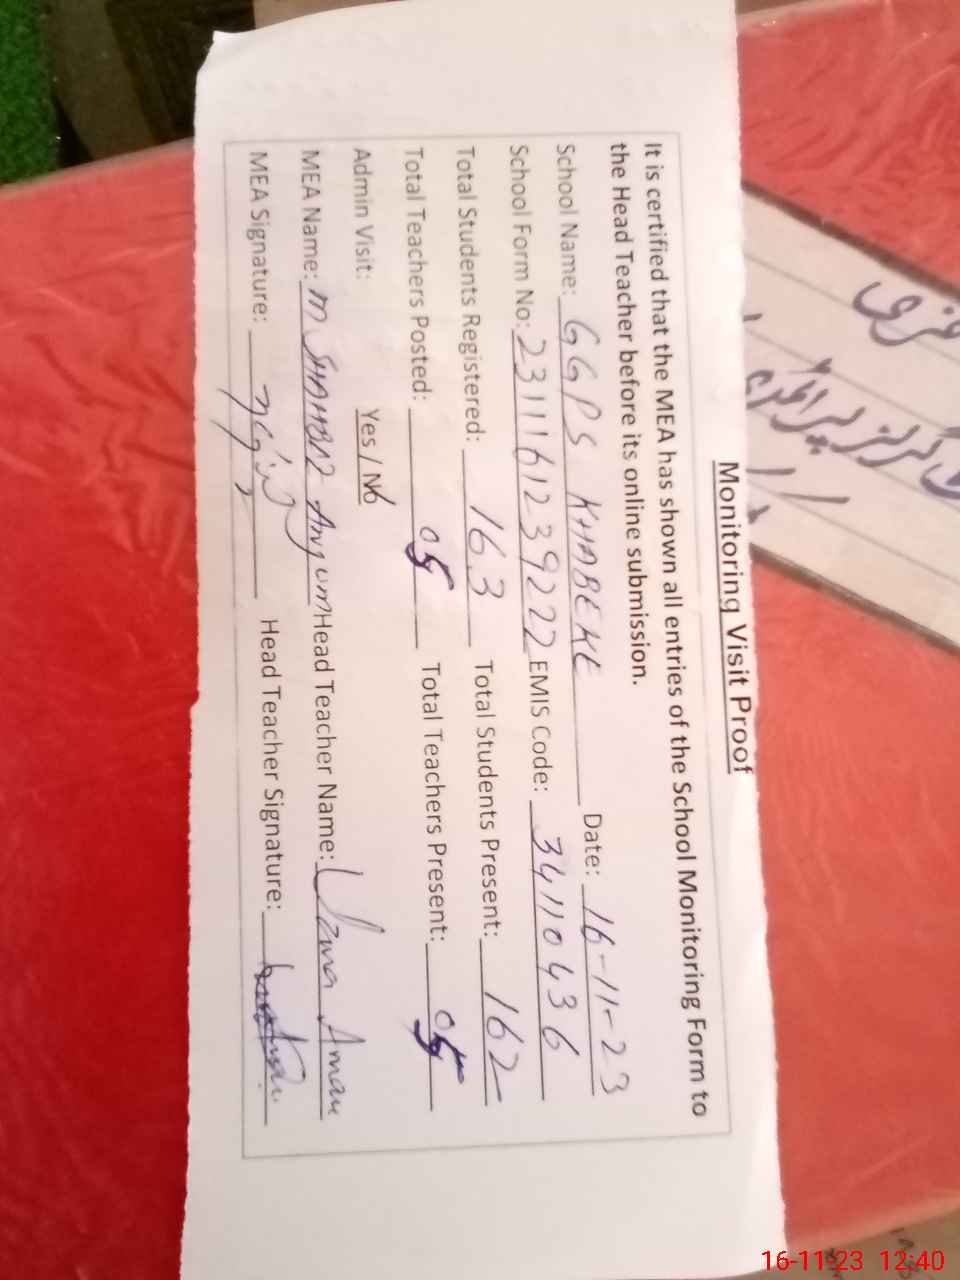 Monitoring Visit Proof
It is certified that the MEA has shown all entries of the School Monitoring Form to
the Head Teacher before its online submission.
School Name: GGPS KHABEKE Date: 16-11-23
School Form No: 2311161239222 EMIS Code: 34110436
Total Students Registered: 163 Total Students Present: 162
Total Teachers Posted: 05 Total Teachers Present: 05
Admin Visit: Yes / No
MEA Name: M SHAHBAZ Anjum Head Teacher Name: Uzma Aman
MEA Signature: Head Teacher Signature:
16-11-23 12:40